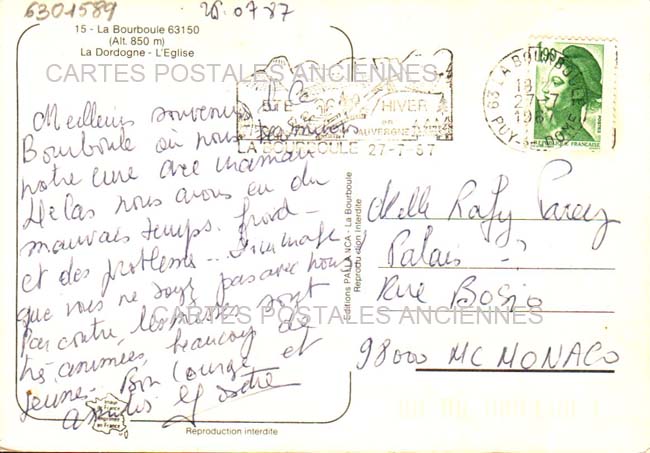 6301589
25.07.87
15 - La Bourboule 63150
(Alt. 850 m)
La Dordogne - L'Eglise
CARTES POSTALES ANCIENNES
ETE HIVER
en
AUVERGNE
LA BOURBOULE 27-7-87
63 LA BOURBOULE
18
27-7
198
PUY-DE-DOME
1,90
REPUBLIQUE FRANCAISE
Meilleurs souvenirs de la
Bourboule où nous
notre cure avec maman
Hélas nous avons eu du
mauvais temps. froid
et des problèmes dommage
que vous ne soyez pas avec nous
Par contre, les messes sont
très animées, beaucoup de
jeune. Bon courage et
à plus
Editions PALLANCA - La Bourboule
Reproduction Interdite
Melle
Palais
Rue Bosio
98000 MC MONACO
CARTES POSTALES ANCIENNES
Reproduction interdite